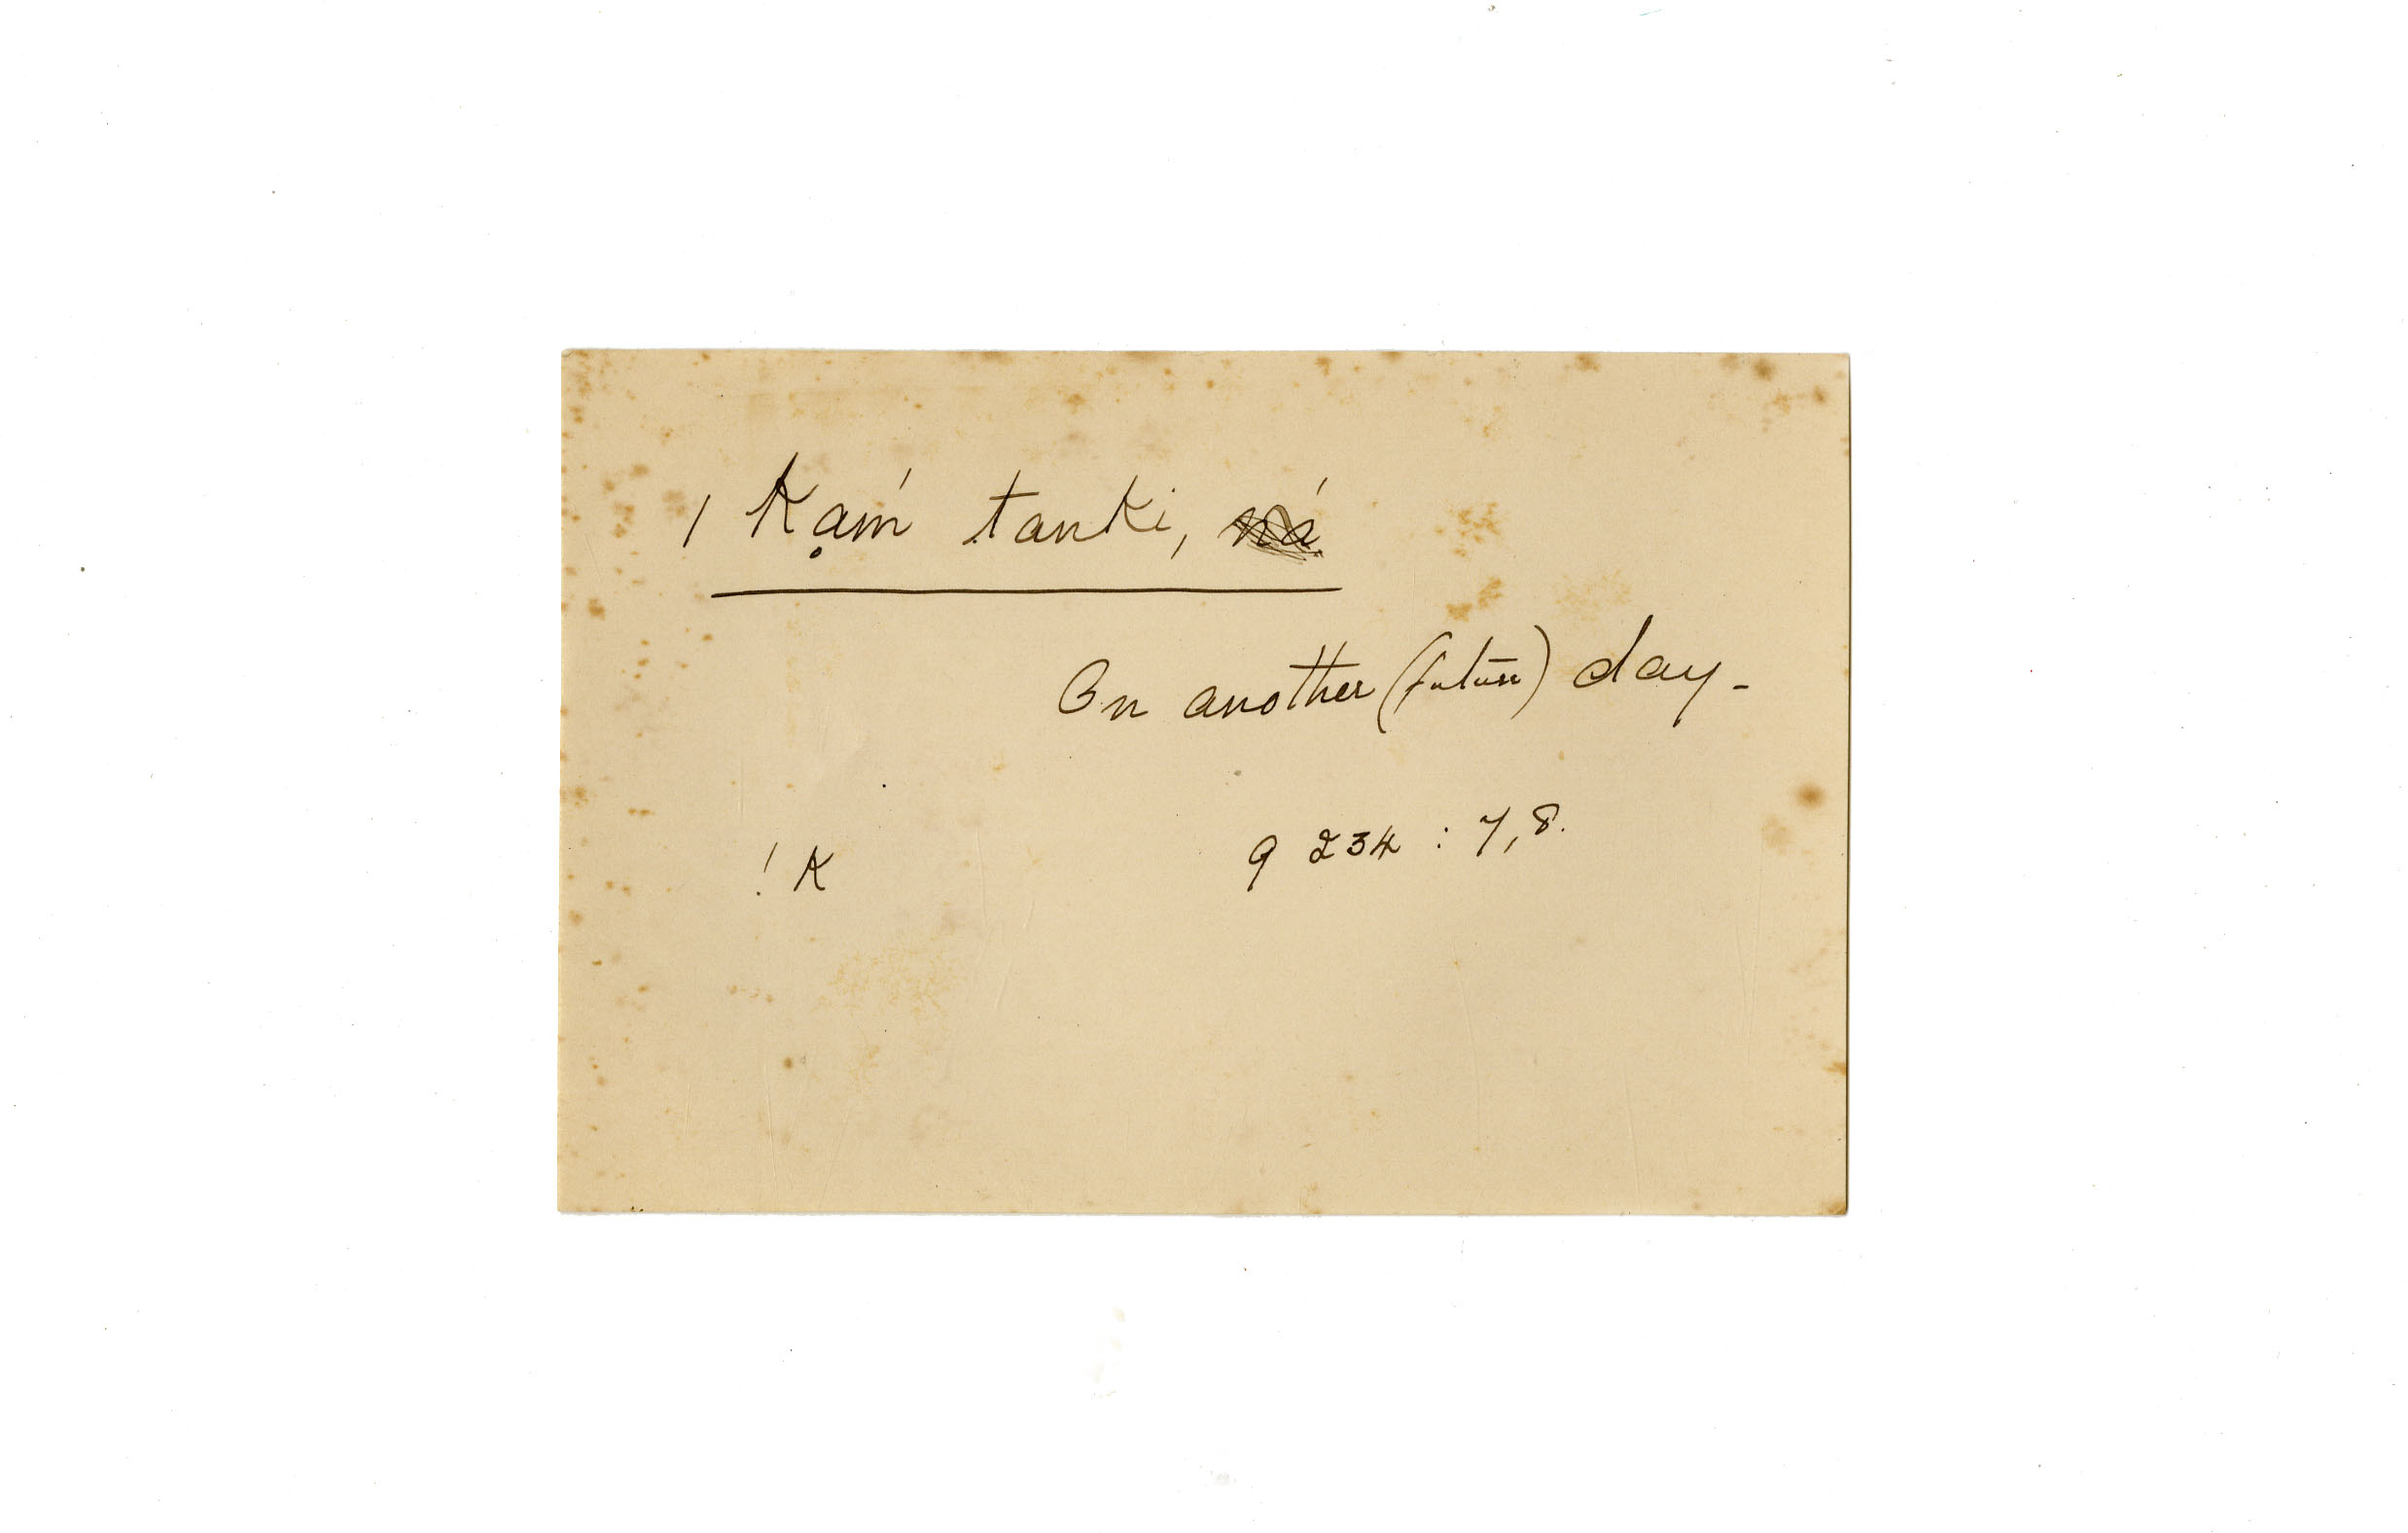 | Kạḿ tanki,
On another (future) day.
! K 9 234 : 7, 8.